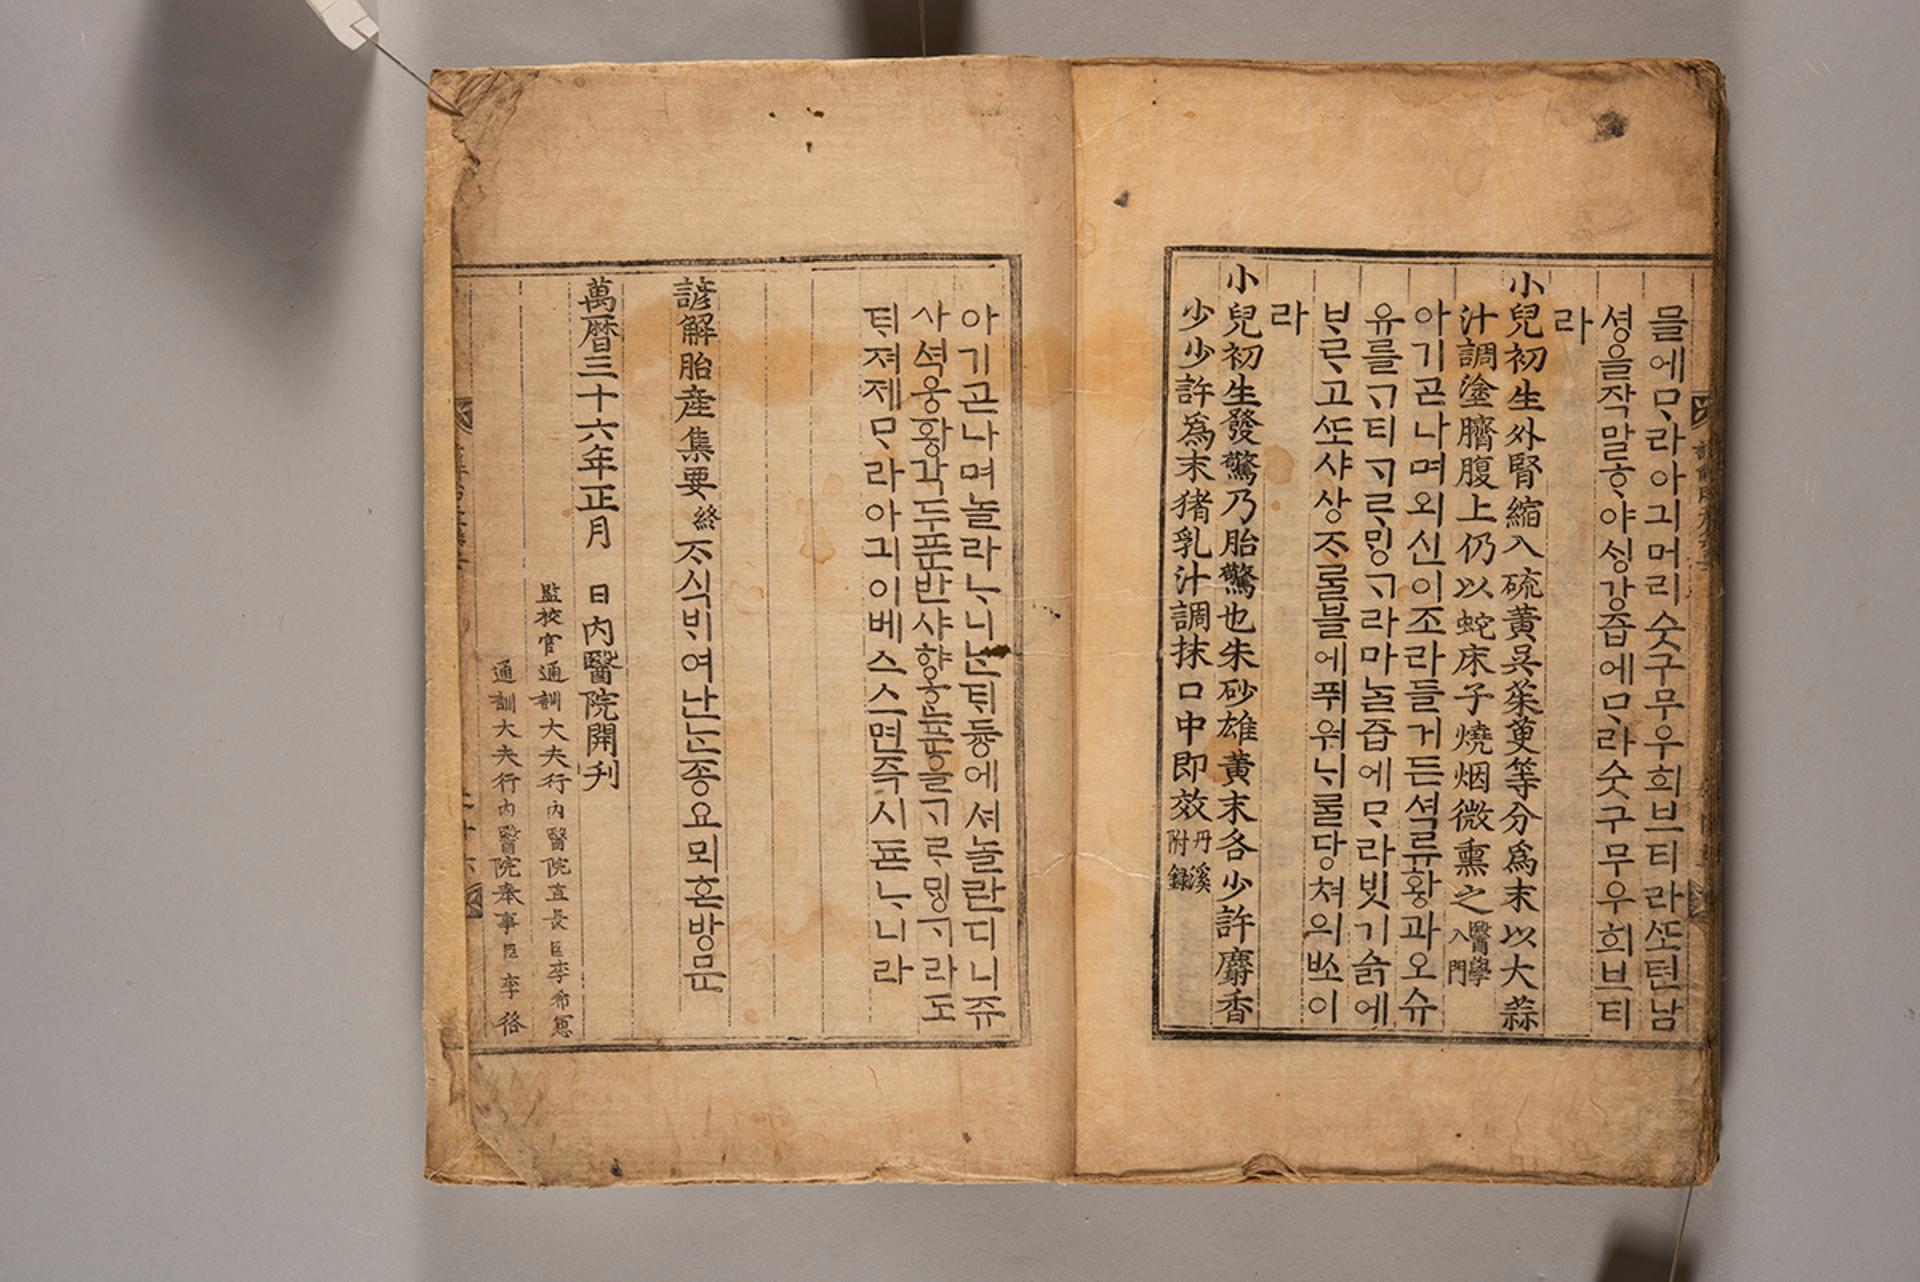 믈에ᄆᆞ라아긔머리숫구무우희브티라ᄯᅩ턴남
셩을작말ᄒᆞ야ᄉᆡᆼ강즙에ᄆᆞ라숫구무우희브티
라
小兒初生外腎縮入硫黃吳茱萸等分爲末以大蒜
汁調塗臍腹上仍以蛇床子燒烟微熏之醫學入門
아기ᄀᆞᆮ나며외신이조라들거든셕류황과오슈
유를ᄀᆞ티ᄀᆞᄅᆞᄆᆡᆼᄀᆞ라마ᄂᆞᆯ즙에ᄆᆞ라ᄇᆡᆺ기슭에
ᄇᆞᄅᆞ고ᄯᅩ샤상ᄌᆞᄅᆞᆯ블에퓌워ᄂᆡᄅᆞᆯ당쳐의ᄡᅬ이
라
小兒初生發驚乃胎驚也朱砂雄黃末各少許麝香
少少許爲末猪乳汁調抹口中卽效丹溪附錄
아기ᄀᆞᆮ나며놀라ᄂᆞ니ᄂᆞᆫᄐᆡ듕에셔놀란디니쥬
사셕웅황각두푼반샤향ᄒᆞᆫ푼을ᄀᆞᄅᆞᄆᆡᆼᄀᆞ라도
ᄐᆡ져제ᄆᆞ라아긔이베스스면즉시됸ᄂᆞ니라
諺解胎產集要 終 ᄌᆞ식ᄇᆡ여난ᄂᆞᆫ종요뫼혼방문
萬曆三十六年正月 日內醫院開刊
監校官通訓大夫行內醫院直長臣李希憲
通訓大夫行內醫院奉事臣李𢓭